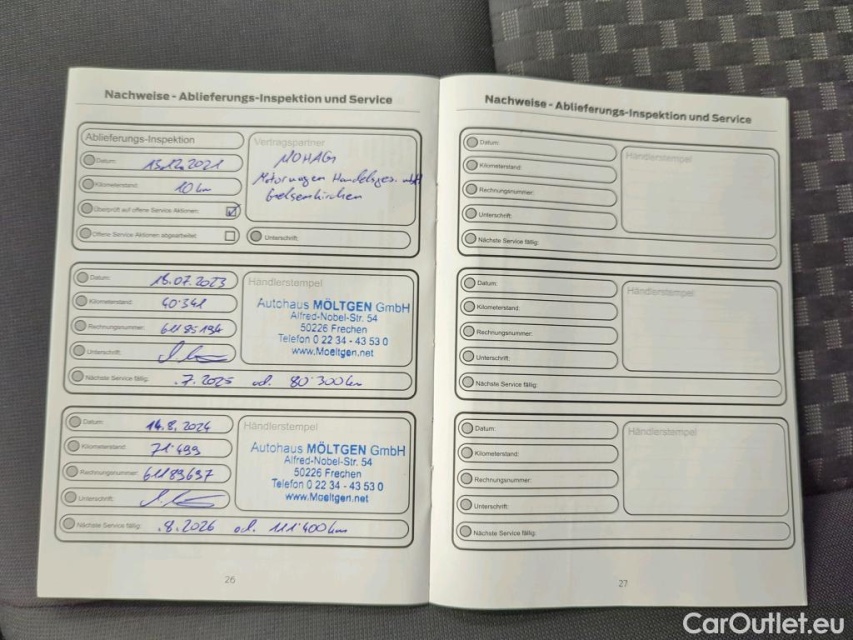 Nachweise - Ablieferungs-Inspektion und Service
Ablieferungs-Inspektion
Datum: 15.12.2021
Kilometerstand: 10 km
Überprüft auf offene Service Aktionen:
Offene Service Aktionen abgearbeitet:
Vertragspartner
NOHAG
Motorwagen Handelsges. mbH
Gelsenkirchen
Unterschrift:
Datum: 18.07.2023
Kilometerstand: 40.341
Rechnungsnummer:
Unterschrift:
Nächste Service fällig: .7.2025 od. 80 300 km
Händlerstempel
Autohaus MÖLTGEN GmbH
Alfred-Nobel-Str. 54
50226 Frechen
Telefon 0 22 34 - 43 53 0
www.Moeltgen.net
Datum: 14.8.2024
Kilometerstand: 71.499
Rechnungsnummer:
Unterschrift:
Nächste Service fällig: .8.2026 od. 111.400 km
Händlerstempel
Autohaus MÖLTGEN GmbH
Alfred-Nobel-Str. 54
50226 Frechen
Telefon 0 22 34 - 43 53 0
www.Moeltgen.net
26
Nachweise - Ablieferungs-Inspektion und Service
Datum:
Kilometerstand:
Rechnungsnummer:
Unterschrift:
Nächste Service fällig:
Händlerstempel
Datum:
Kilometerstand:
Rechnungsnummer:
Unterschrift:
Nächste Service fällig:
Händlerstempel
Datum:
Kilometerstand:
Rechnungsnummer:
Unterschrift:
Nächste Service fällig:
Händlerstempel
27
CarOutlet.eu